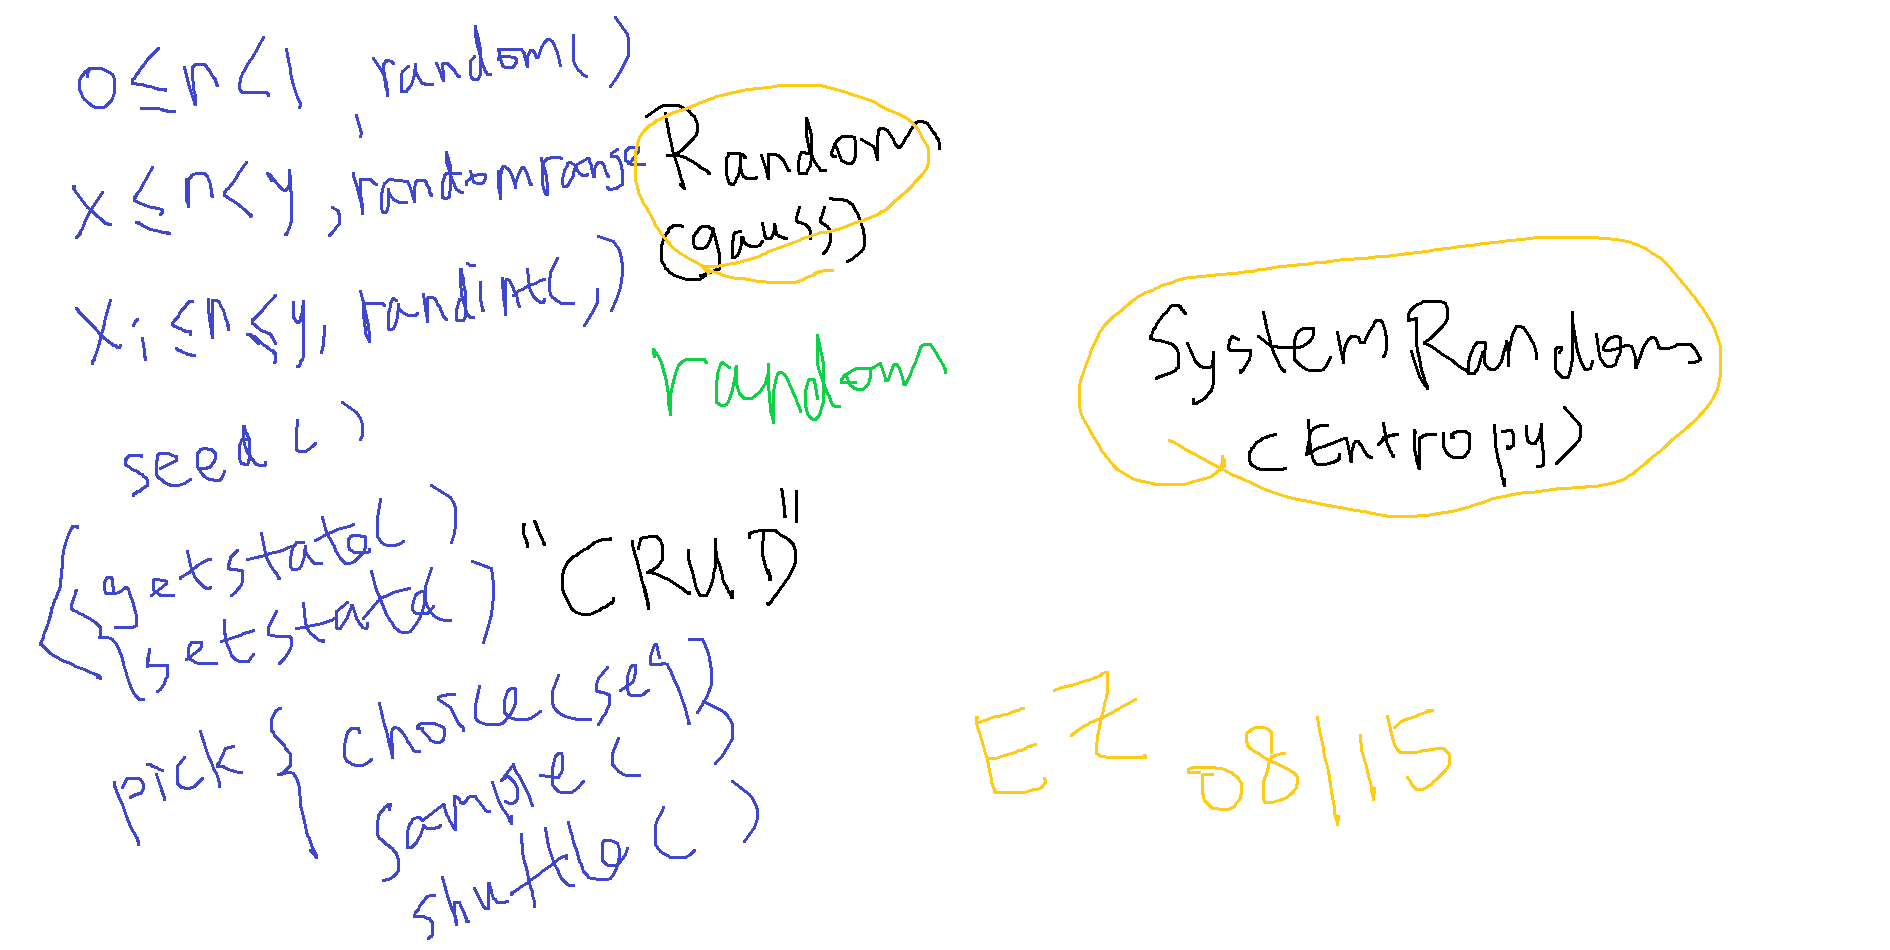 0≤n<1, random()
x≤n<y, randomrange
xi≤n≤y, randint(,)
seed()
getstate()
setstate()
pick { choice(seq)
sample(
shuffle()
Random
(gauss)
random
"CRUD"
SystemRandom
(Entropy)
EZ 08/15